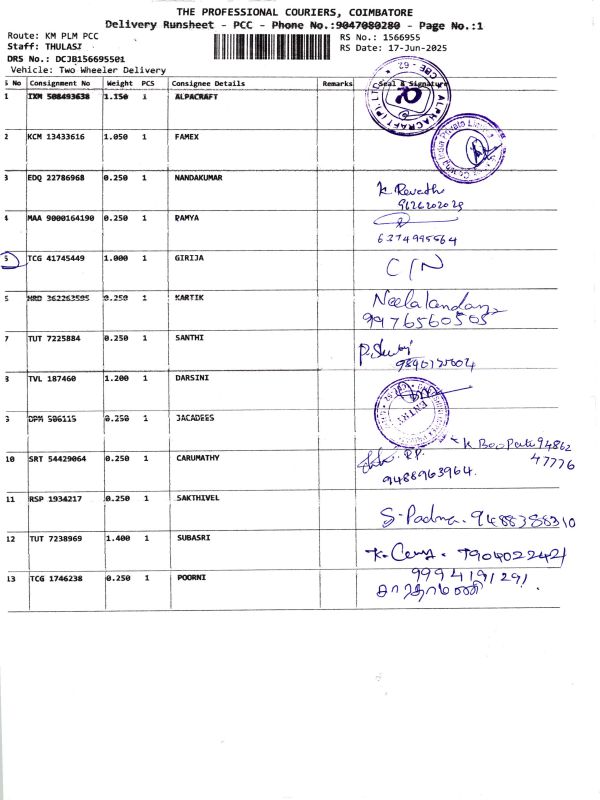 THE PROFESSIONAL COURIERS, COIMBATORE
Delivery Runsheet - PCC - Phone No.:9047080280 - Page No.:1
Route: KM PLM PCC
Staff: THULASI
DRS No.: DCJB156695501
Vehicle: Two Wheeler Delivery
RS No.: 1566955
RS Date: 17-Jun-2025
S No Consignment No Weight PCS Consignee Details Remarks Seal & Signature
1 IXM 508493638 1.150 1 ALPACRAFT
ALPHACRAFT (P) LTD CBE - 62
2 KCM 13433616 1.050 1 FAMEX
3 EDQ 22786968 0.250 1 NANDAKUMAR K Revathi
9626202029
4 MAA 9000164190 0.250 1 RAMYA
6374995564
5 TCG 41745449 1.000 1 GIRIJA C/N
6 HRD 362263595 0.250 1 KARTIK
9976560505
7 TUT 7225884 0.250 1 SANTHI
8 TVL 187460 1.200 1 DARSINI
ENTRY
9 DPM 506115 0.250 1 JACADEES 94862
47776
10 SRT 54429064 0.250 1 CARUMATHY
9488963964.
11 RSP 1934217 0.250 1 SAKTHIVEL S. Padma. 9488388310
12 TUT 7238969 1.400 1 SUBASRI 7904022421
13 TCG 1746238 0.250 1 POORNI 9994191291